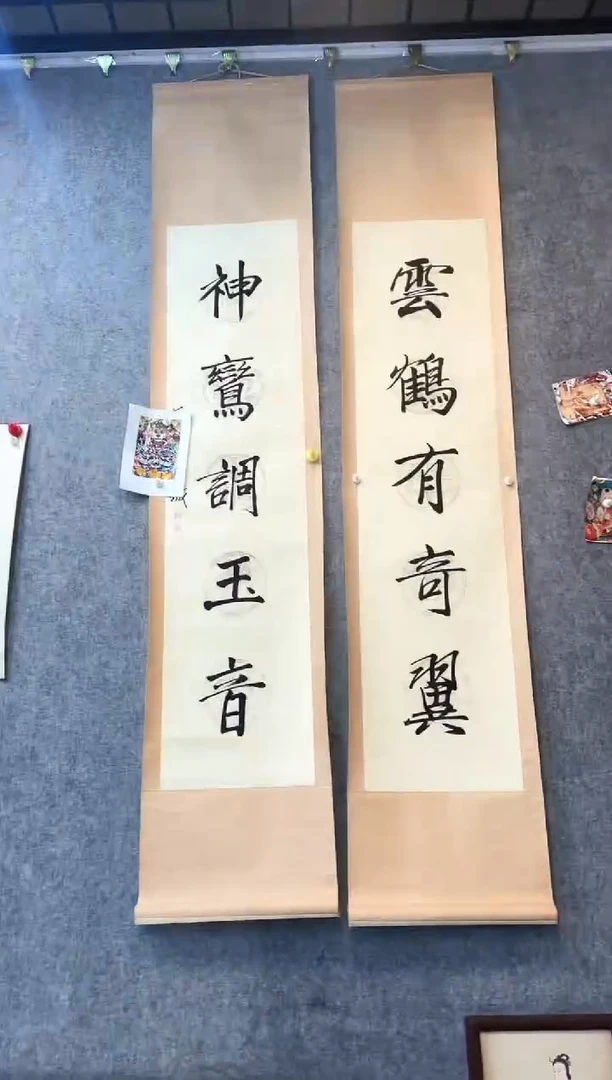 雲鶴有奇翼
神鸞調玉音